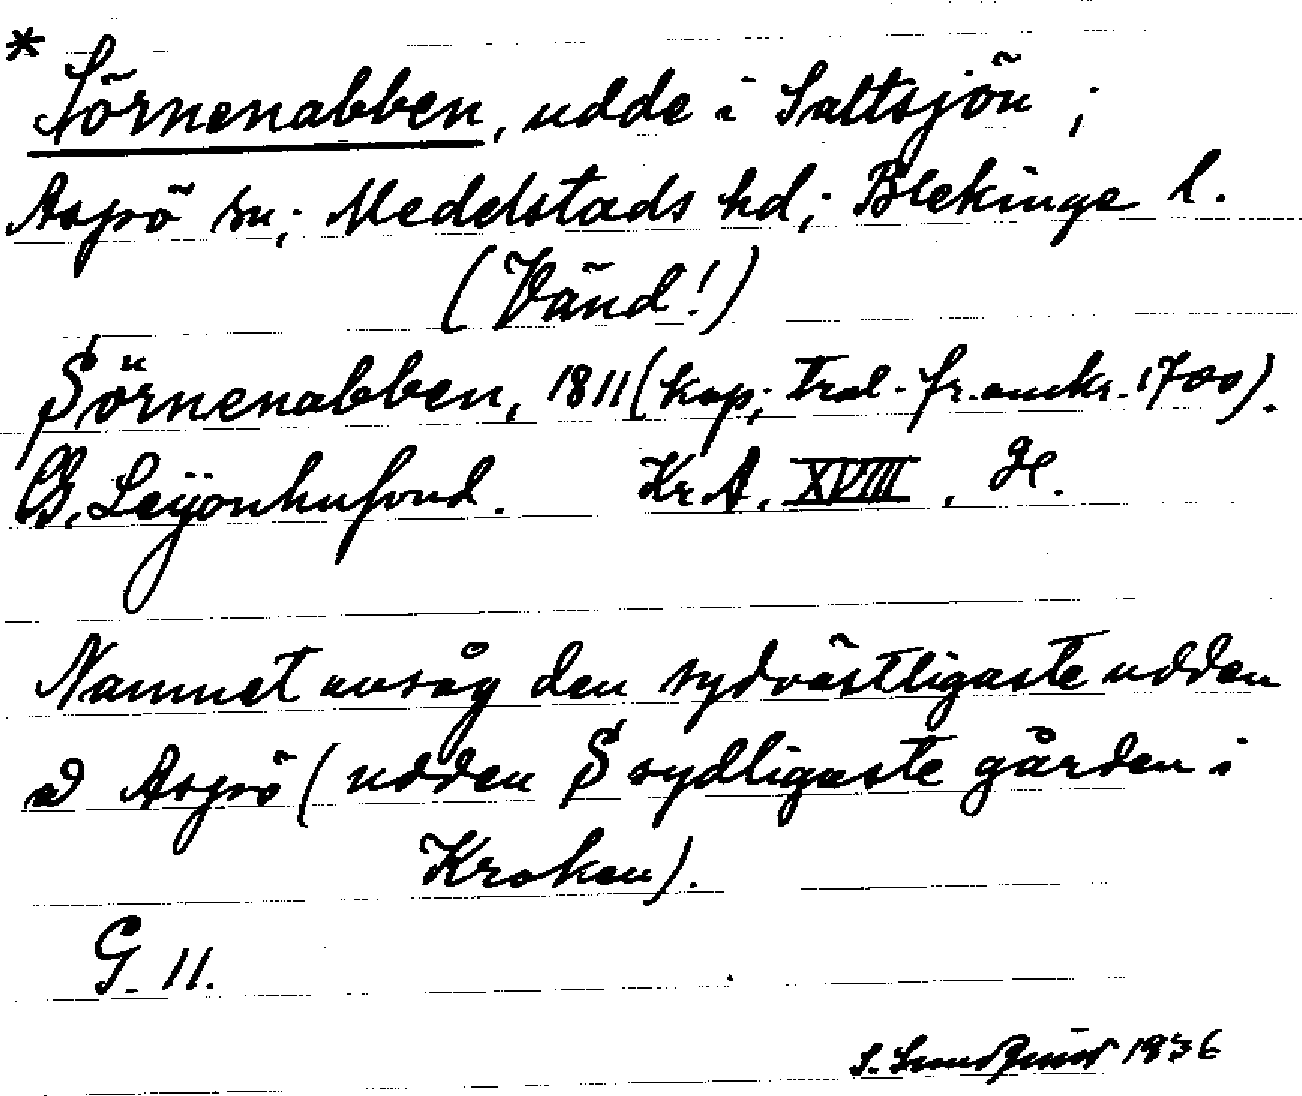 * Sörnenabben, udde i Saltsjön;
Aspö sn; Medelstads hd; Blekinge l.
(Vänd!)
Sörnenabben, 1811 (kop; trol. fr. omkr. 1700).
B. Leijonhufvud. Kr A. XVIII, H.
Namnet avsåg den sydvästligaste udden
å Aspö (udden S sydligaste gården i
Kroken).
G. 11.
S. 1936